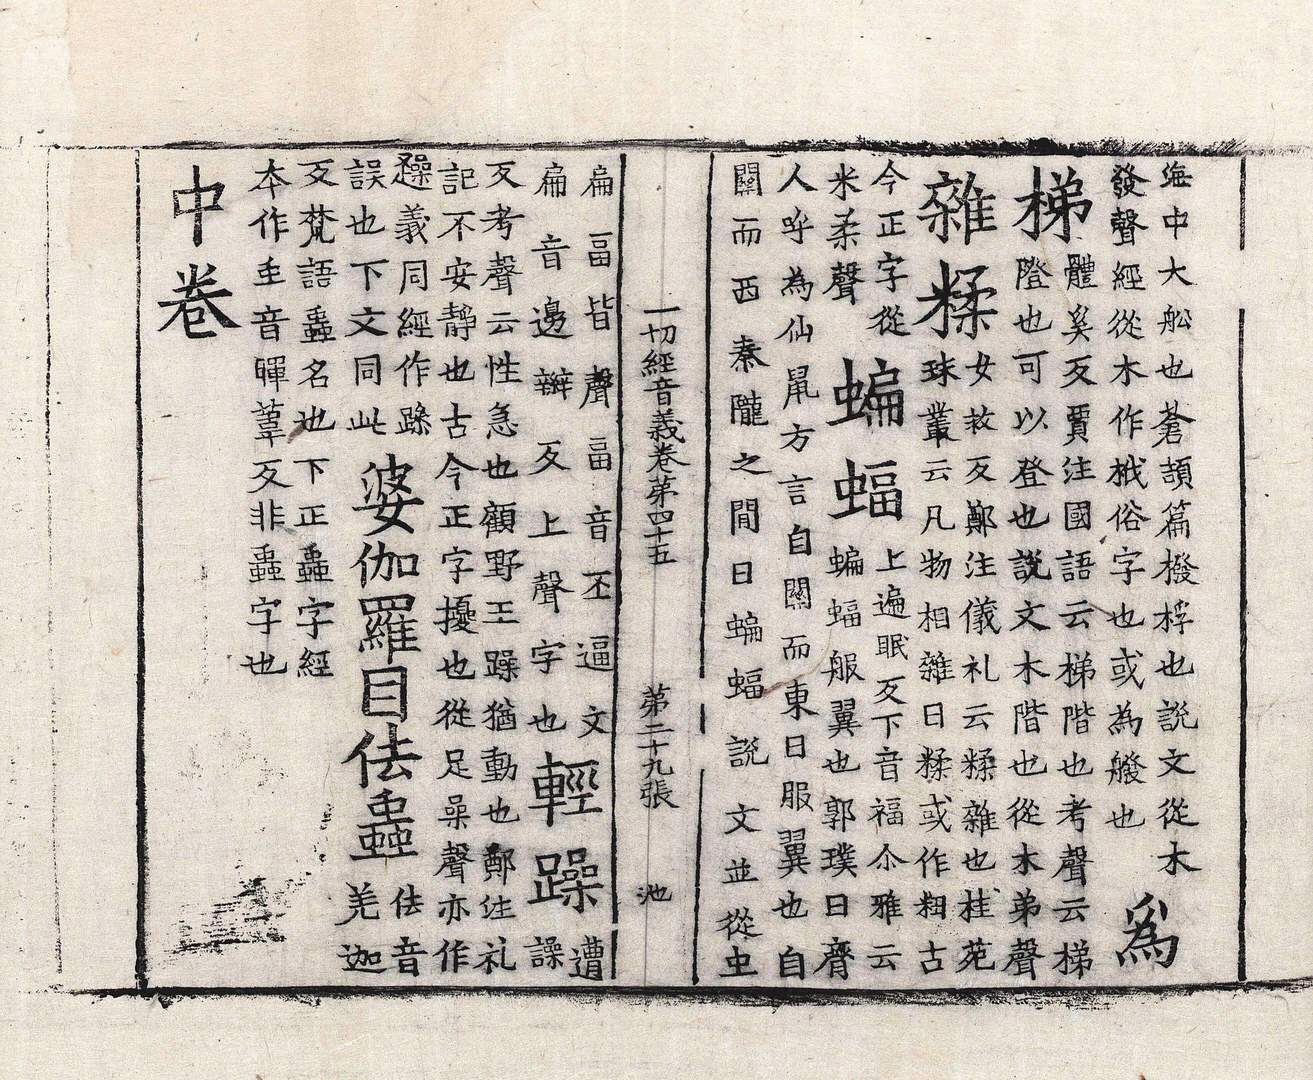 海中大舩也蒼頡篇撥桴也說文從木
發聲經從木作栰俗字也或為艬也
為
梯
體奚反賈注國語云梯階也考聲云梯
隥也可以登也說文木階也從木弟聲
雜糅
女救反鄭注儀礼云糅雜也桂苑
珠叢云凡物相雜曰糅或作粈古
今正字從
米柔聲
蝙蝠
上遍眠反下音福尒雅云
蝙蝠服翼也郭璞曰齊
人呼為仙鼠方言自關而東曰服翼也自
關而西秦隴之間曰蝙蝠說文並從虫
一切經音義卷第四十五 第二十九張 池
扁畐皆聲畐音丕逼文
扁音邊辮反上聲字也
輕躁
遭
譟
反考聲云性急也顧野王躁猶動也鄭注礼
記不安靜也古今正字擾也從足喿聲亦作
趮義同經作躁
誤也下文同此
婆伽羅目佉蟲
佉音
羌迦
反梵語蟲名也下正蟲字經
本作虫音暉葦反非蟲字也
中卷